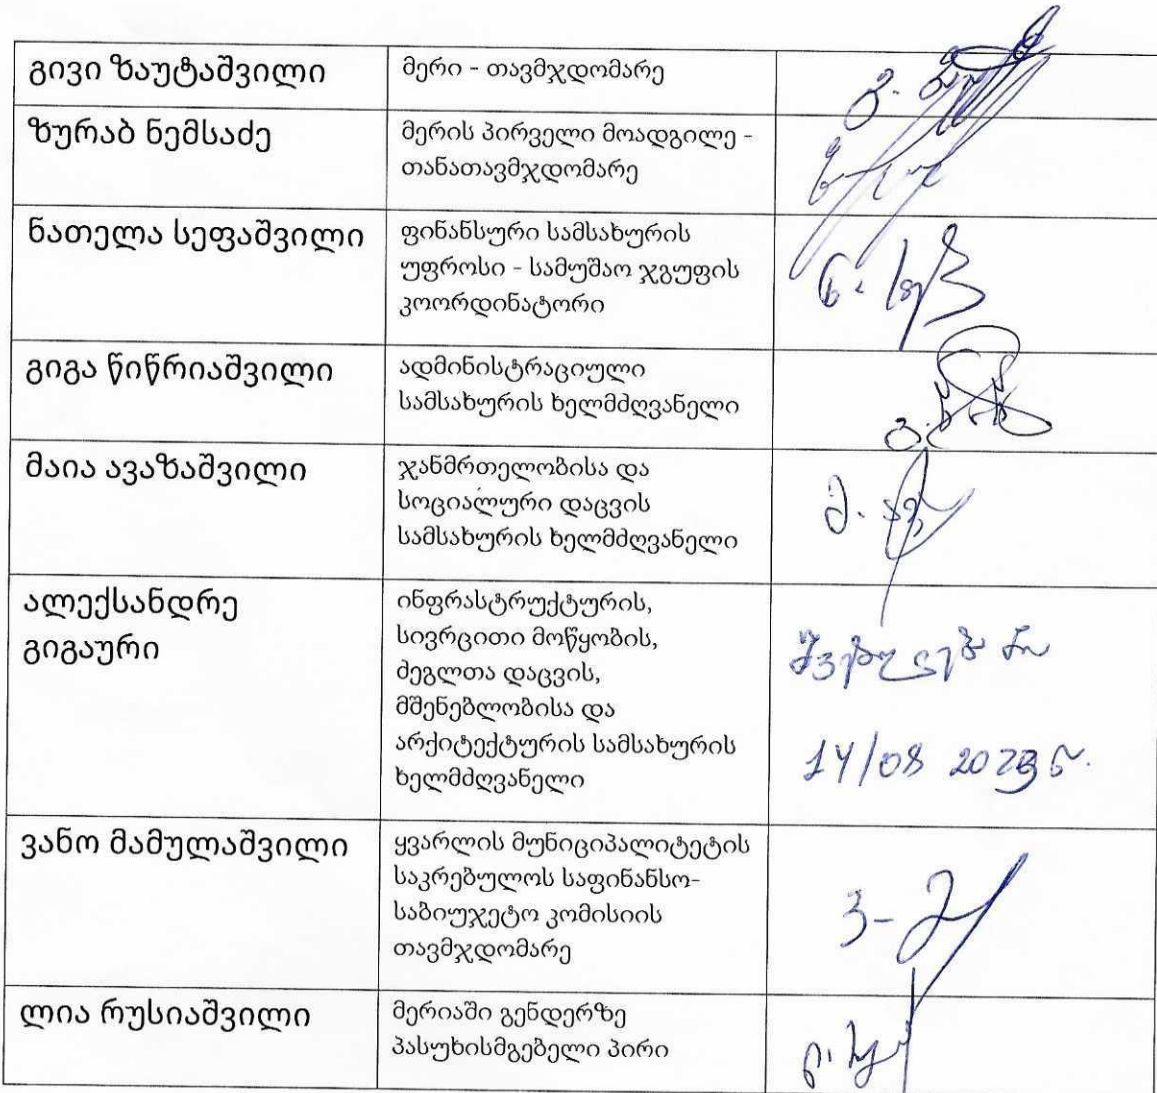 გივი ზაუტაშვილი
მერი - თავმჯდომარე
ზურაბ ნემსაძე
მერის პირველი მოადგილე -
თანათავმჯდომარე
ნათელა სეფაშვილი
ფინანსური სამსახურის
უფროსი - სამუშაო ჯგუფის
კოორდინატორი
გიგა წიწრიაშვილი
ადმინისტრაციული
სამსახურის ხელმძღვანელი
მაია ავაზაშვილი
ჯანმრთელობისა და
სოციალური დაცვის
სამსახურის ხელმძღვანელი
ალექსანდრე
გიგაური
ინფრასტრუქტურის,
სივრცითი მოწყობის,
ძეგლთა დაცვის,
მშენებლობისა და
არქიტექტურის სამსახურის
ხელმძღვანელი
შვებულებაში
14/08 2023 წ.
ვანო მამულაშვილი
ყვარლის მუნიციპალიტეტის
საკრებულოს საფინანსო-
საბიუჯეტო კომისიის
თავმჯდომარე
ლია რუსიაშვილი
მერიაში გენდერზე
პასუხისმგებელი პირი